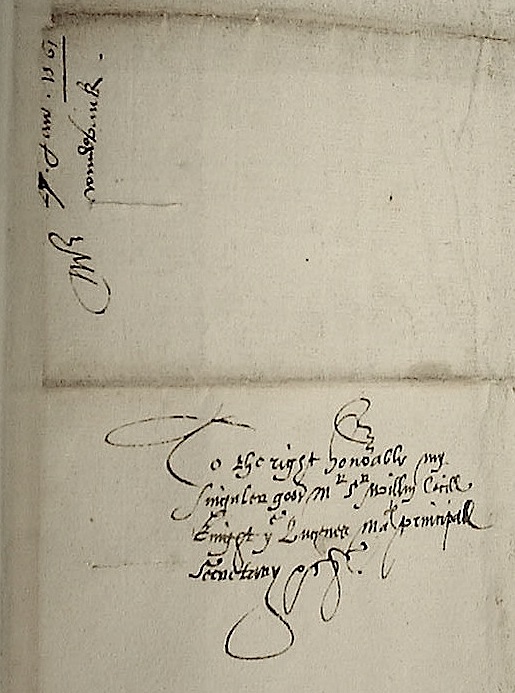 7. Jan. 156
To the right honorable my
singuler good Mr Sr Willm Cecill
knight ye Quenes Mats principall
Secretary